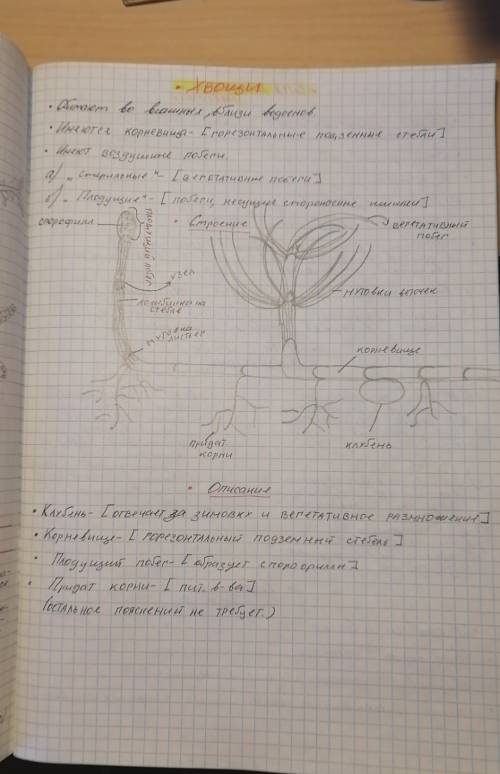 • Хвощи
• Обитают во влажных, вблизи водоемов.
• Имеются корневища- [горезонтальные подземные стебли]
• Имеют воздушние побеги.
а) "Стерильные"- [вегетативные побеги]
б) "Плодущие"- [побеги, несущие спороносные шишки]
спорофилл
плодущий побег
• Строение
вегетативный побег
узел
на стебле
мутовки веточек
мутовка листьев
корневище
придат корни
клубень
• Описание
• Клубень- [отвечает за зимовку и вегетативное размножение]
• Корневище- [горезонтальный подземный стебель]
• Плодущий побег- [образует спорофиллы]
• Придат корни- [пит. в-ва]
(остальное пояснений не требует.)